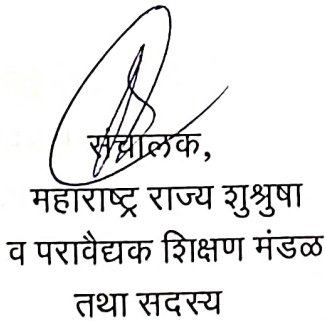 संचालक,
महाराष्ट्र राज्य शुश्रुषा
व परावैद्यक शिक्षण मंडळ
तथा सदस्य